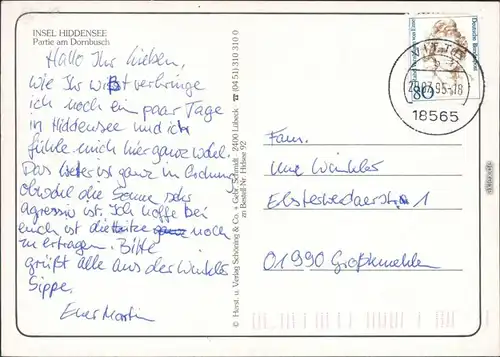 INSEL HIDDENSEE
Partie am Dornbusch
Hallo Ihr Lieben,
Wie Ihr wißt verbringe
ich noch ein paar Tage
in Hiddensee und ich
fühle mich hier ganz wohl.
Das Wetter ist ganz in Ordnung
obwohl die Sonne sehr
agressiv ist. Ich hoffe bei
euch ist die Hitze ganz noch
zu ertragen. Bitte
grüßt alle aus der Winkler
Sippe.
Euer Martin
© Herst. u. Verlag Schöning & Co. + Gebr. Schmidt · 2400 Lübeck ☎ (04 51) 310 310 0
zu Bestell-Nr. Hidsee 92
Deutsche Bundespost
80
95-18
18565
Fam.
Uwe Winkler
Elsterwerdaerstr. 1
01990 Großkmehlen